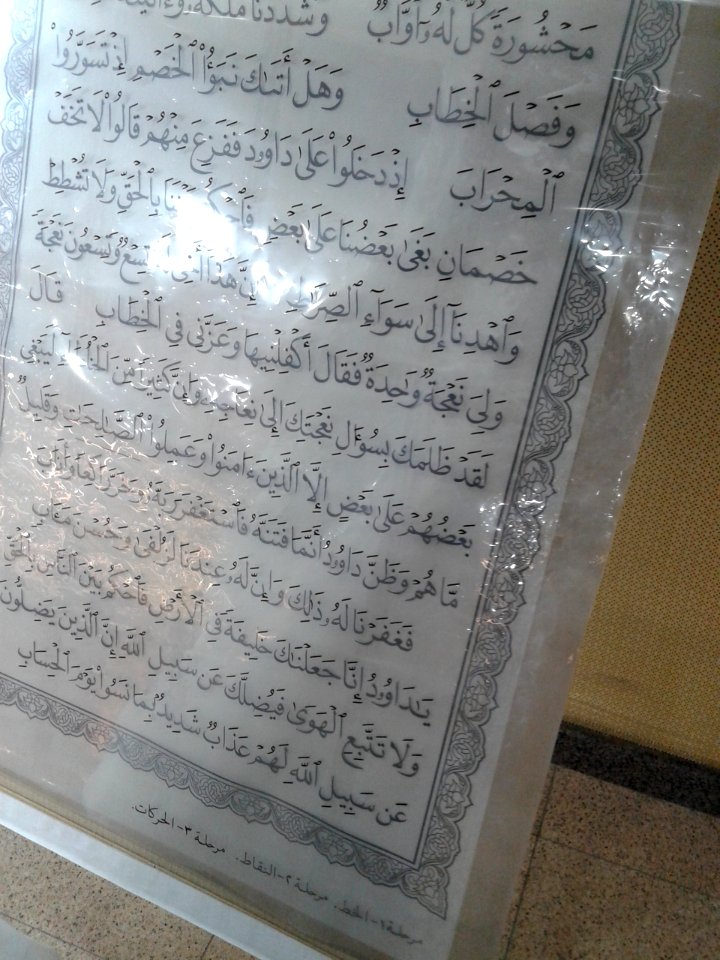 مَحْشُورَةً كُلٌّ لَّهُۥٓ أَوَّابٌ وَشَدَدْنَا مُلْكَهُۥ
وَفَصْلَ ٱلْخِطَابِ وَهَلْ أَتَىٰكَ نَبَؤُا۟ ٱلْخَصْمِ إِذْ تَسَوَّرُوا۟
ٱلْمِحْرَابَ إِذْ دَخَلُوا۟ عَلَىٰ دَاوُۥدَ فَفَزِعَ مِنْهُمْ قَالُوا۟ لَا تَخَفْ
خَصْمَانِ بَغَىٰ بَعْضُنَا عَلَىٰ بَعْضٍ بِٱلْحَقِّ وَلَا تُشْطِطْ
وَٱهْدِنَآ إِلَىٰ سَوَآءِ ٱلصِّرَٰطِ إِنَّ هَٰذَآ أَخِى تِسْعٌ وَتِسْعُونَ نَعْجَةً
وَلِىَ نَعْجَةٌ وَٰحِدَةٌ فَقَالَ أَكْفِلْنِيهَا وَعَزَّنِى فِى ٱلْخِطَابِ قَالَ
لَقَدْ ظَلَمَكَ بِسُؤَالِ نَعْجَتِكَ إِلَىٰ نِعَاجِهِۦ وَإِنَّ كَثِيرًا مِّنَ ٱلْخُلَطَآءِ لَيَبْغِى
بَعْضُهُمْ عَلَىٰ بَعْضٍ إِلَّا ٱلَّذِينَ ءَامَنُوا۟ وَعَمِلُوا۟ ٱلصَّٰلِحَٰتِ وَقَلِيلٌ
مَّا هُمْ وَظَنَّ دَاوُۥدُ أَنَّمَا فَتَنَّٰهُ فَٱسْتَغْفَرَ رَبَّهُۥ وَخَرَّ رَاكِعًا وَأَنَابَ
فَغَفَرْنَا لَهُۥ ذَٰلِكَ وَإِنَّ لَهُۥ عِندَنَا لَزُلْفَىٰ وَحُسْنَ مَـَٔابٍ
يَٰدَاوُۥدُ إِنَّا جَعَلْنَٰكَ خَلِيفَةً فِى ٱلْأَرْضِ فَٱحْكُم بَيْنَ ٱلنَّاسِ بِٱلْحَقِّ
وَلَا تَتَّبِعِ ٱلْهَوَىٰ فَيُضِلَّكَ عَن سَبِيلِ ٱللَّهِ إِنَّ ٱلَّذِينَ يَضِلُّونَ
عَن سَبِيلِ ٱللَّهِ لَهُمْ عَذَابٌ شَدِيدٌۢ بِمَا نَسُوا۟ يَوْمَ ٱلْحِسَابِ
مرحلة ١- الخط. مرحلة ٢- النقاط. مرحلة ٣- الحركات.